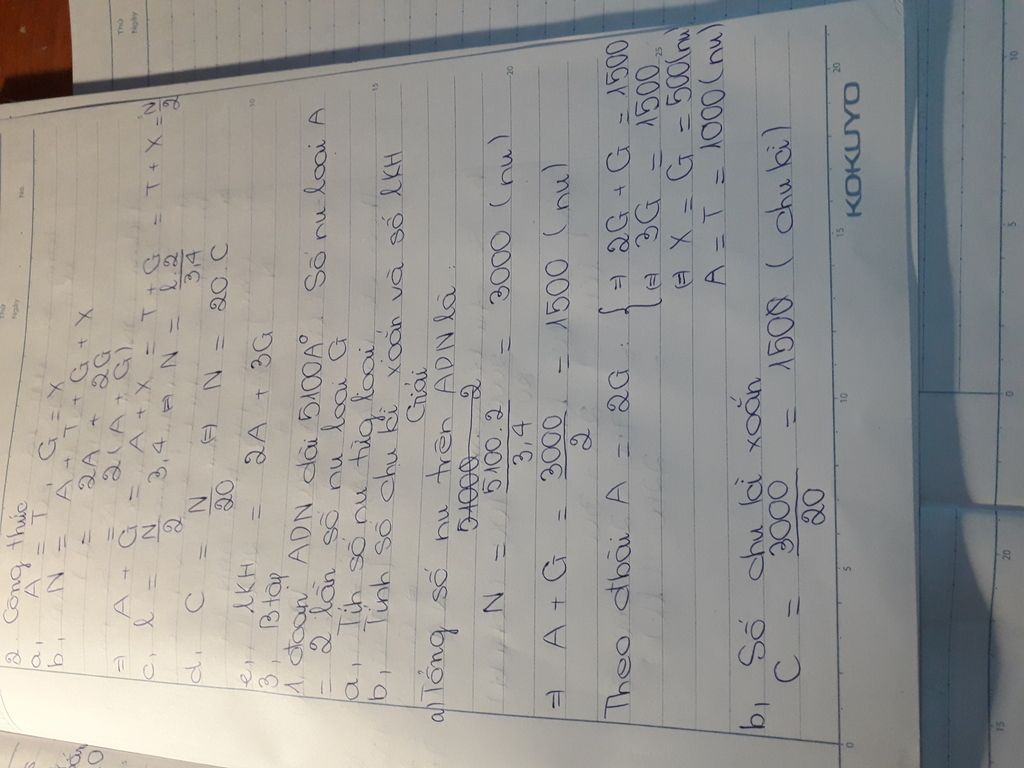 2. Công thức
a, A = T, G = X
b, N = A + T + G + X
= 2A + 2G
= 2(A + G)
⇒ A + G = A + X = T + G = T + X = N/2
c, l = N/2 3,4 ⇔ N = l.2/3,4
d, C = N/20 ⇔ N = 20.C
e, lKH = 2A + 3G
3, Btập
1 đoạn ADN dài 5100A° Số nu loại A
= 2 lần số nu loại G
a, Tính số nu từg loại
b, Tính số chu kì xoắn và số lKH
Giải
a) Tổng số nu trên ADN là:
N = 5100.2/3,4 = 3000 (nu)
⇒ A + G = 3000/2 = 1500 (nu)
Theo đbài A = 2G: { ⇒ 2G + G = 1500
⇔ 3G = 1500
⇔ X = G = 500(nu)
A = T = 1000(nu)
b, Số chu kì xoắn
C = 3000/20 = 1500 (chu kì)
KOKUYO